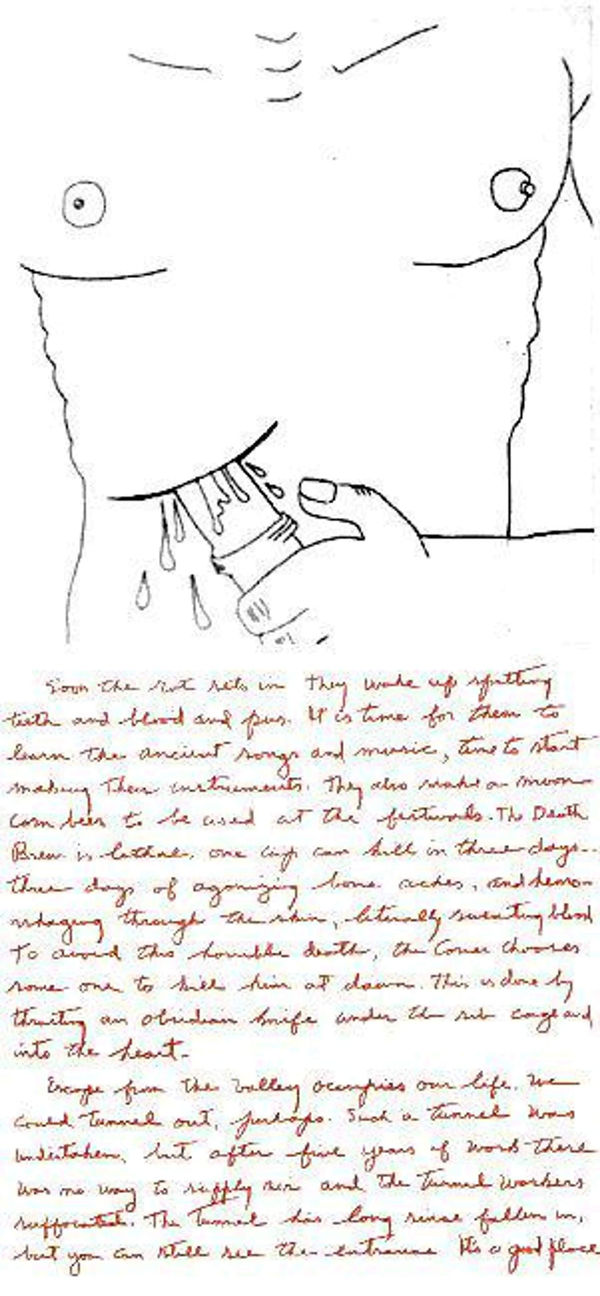 Soon the rot sets in They wake up spitting
teeth and blood and pus. It is time for them to
learn the ancient songs and music, time to start
making their instruments. They also make a moon
corn beer to be used at the festivals. The Death
Brew is lethal, one cup can kill in three days..
three days of agonizing bone aches, and hemo-
rrhaging through the skin, literally sweating blood
To avoid this horrible death, the Comer chooses
some one to kill him at dawn. This is done by
thrusting an obsidian knife under the rib cage and
into the heart.
Escape from the valley occupies our life. We
could tunnel out, perhaps. Such a tunnel was
undertaken, but after five years of work there
was no way to supply air and the tunnel workers
suffocated. The tunnel has long since fallen in,
but you can still see the entrance It's a good place